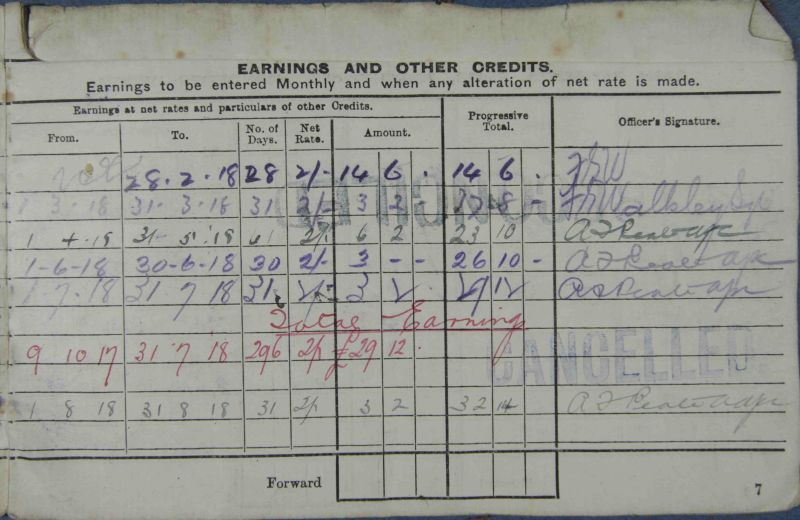 EARNINGS AND OTHER CREDITS.
Earnings to be entered Monthly and when any alteration of net rate is made.
Earnings at net rates and particulars of other Credits. Progressive Total. Officer's Signature.
From. To. No. of Days. Net Rate. Amount.
28. 2. 18 28 2/- 14 6 . 14 6 .
1 3 18 31. 3. 18 31 2/- 3 2 - 17 8 -
1 4 18 31 5 18 61 2/- 6 2 23 10
1-6-18 30-6-18 30 2/- 3 - - 26 10 -
1-7-18 31 7 18 31
Total Earning
9 10 17 31 7 18 296 2/- £29 12.
CANCELLED.
1 8 18 31 8 18 31 2/- 3 2 32 14
Forward
7